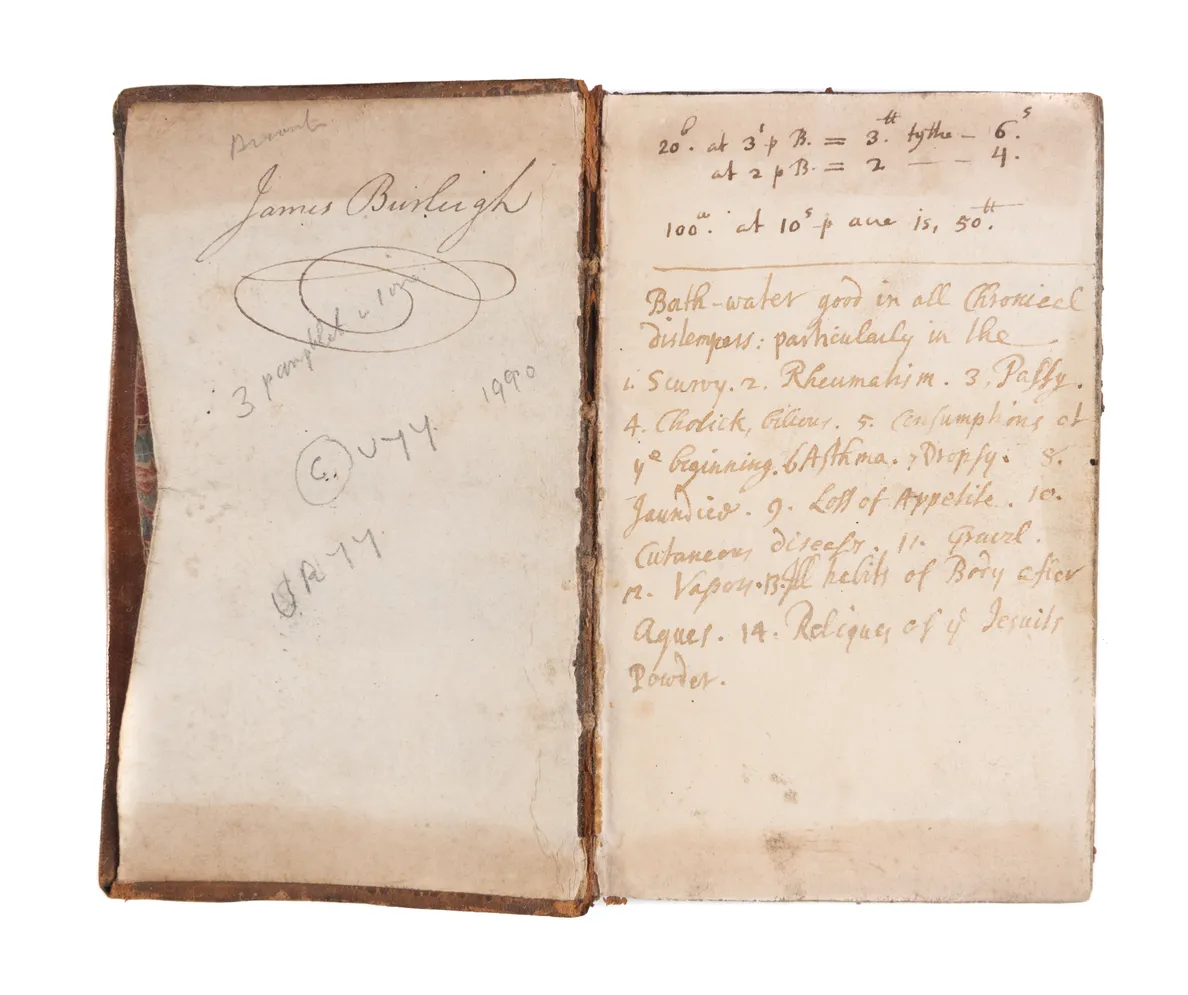 James Burleigh
3 pamphlets in 1 vol
1990
C. U77
UR77
20.b at 3s p B. = 3.tt tythe - 6.s
at 2 p B. = 2 — - 4.
100a. at 10s p acre is, 50tt.
Bath-water good in all Chronical
distempers: particularly in the
1. Scurvy. 2. Rheumatism. 3. Palsy.
4. Cholick, bilious. 5. Consumptions at
ye beginning. 6 Asthma. 7 Dropsy. 8.
Jaundice. 9. Loss of Appetite. 10.
Cutaneous diseases. 11. Gravel.
12. Vapors. 13. Ill habits of Body after
Agues. 14. Reliques of ye Jesuits
Powder.